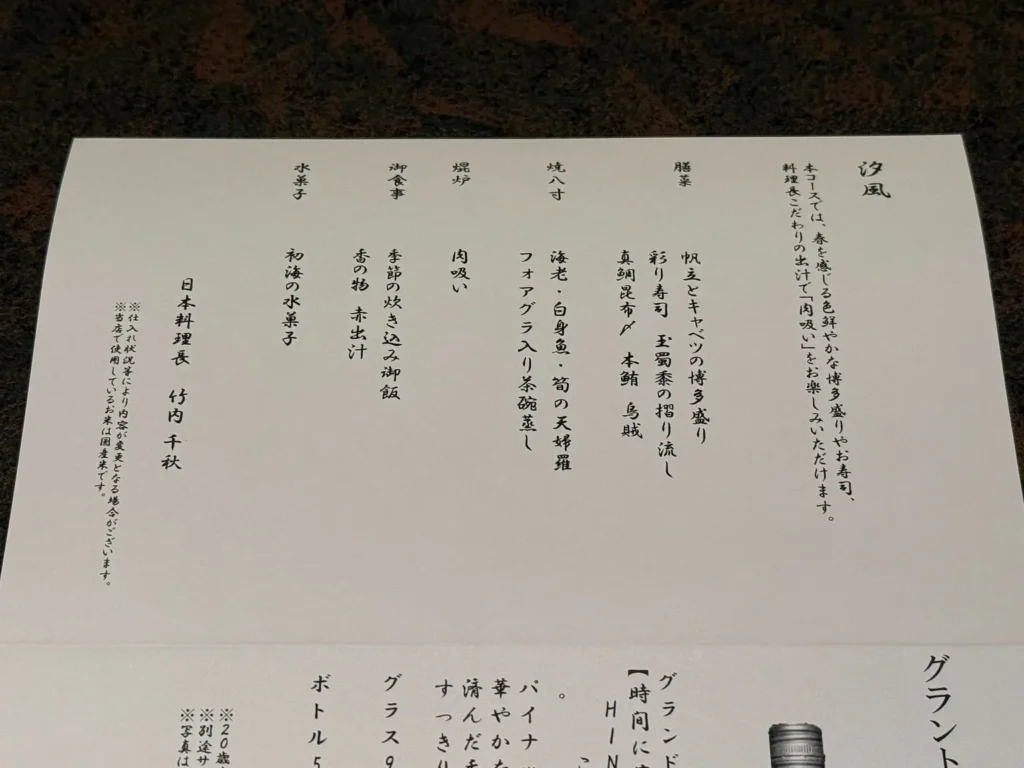 汐風
本コースでは、春を感じる色鮮やかな博多盛りやお寿司、
料理長こだわりの出汁で「肉吸い」をお楽しみいただけます。
膳菜
帆立とキャベツの博多盛り
彩り寿司 玉蜀黍の摺り流し
真鯛昆布〆 本鮪 烏賊
焼八寸
海老・白身魚・筍の天婦羅
フォアグラ入り茶碗蒸し
焜炉
肉吸い
御食事
季節の炊き込み御飯
香の物 赤出汁
水菓子
初海の水菓子
日本料理長 竹内 千秋
※仕入れ状況等により内容が変更となる場合がございます。
※当店で使用しているお米は国産米です。
グラント
グランド
【時間に
HIN
こ
。
パイナ
華やかな
済んだ
すっきり
グラス9
ボトル5
※20歳
※別途サ
※写真は